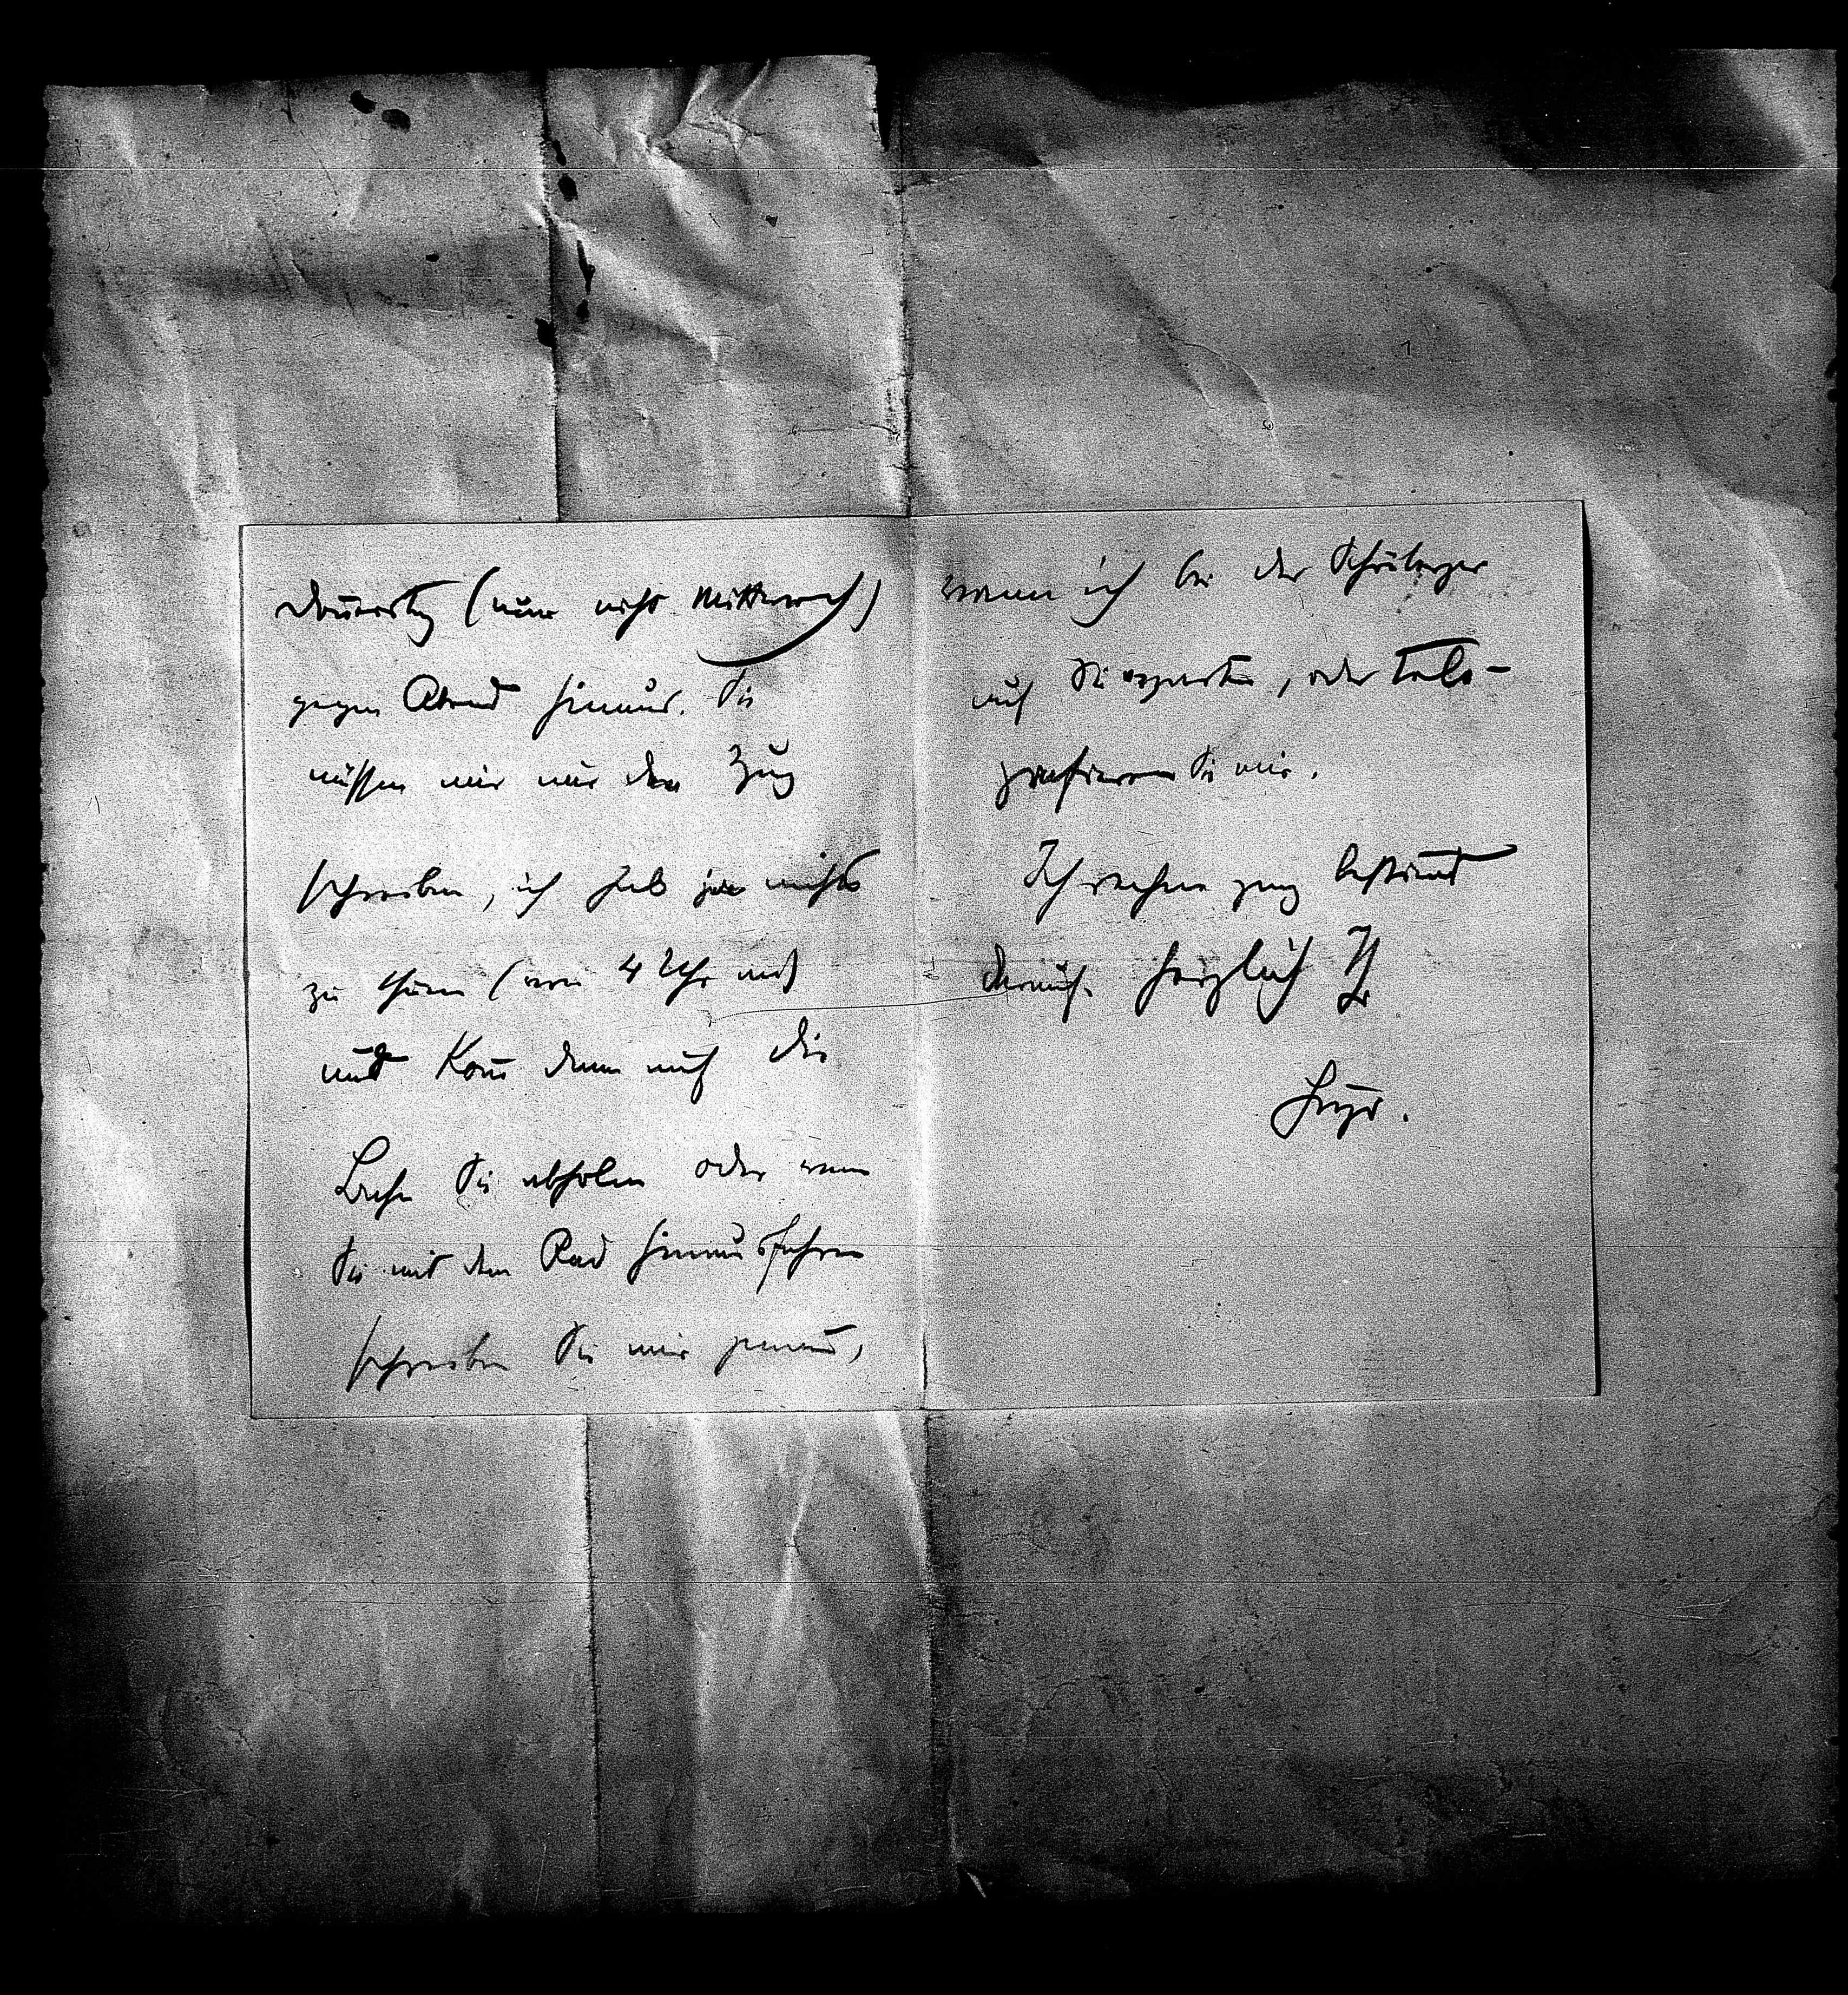 Donnerstag (nur nicht Mittwoch)
gegen Abend hinaus. Sie
müssen mir nur den Zug
schreiben, ich hab ja nichts
zu thun (von 4 Uhr an)
und kom̄ dann auf die
Bahn Sie abholen oder wenn
Sie mit dem Rad hinausfahren
schreiben Sie mir genau,
wann ich bei der
auf Sie warten, oder tele-
grafieren Sie mir.
Ich rechne ganz bestim̄t
darauf. Herzlich Ihr
Hugo.